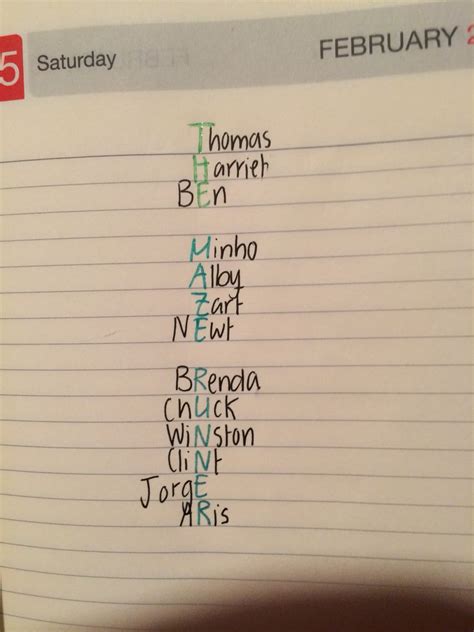 5 Saturday FEBRUARY 2
Thomas
Harriet
BEn
Minho
Alby
Zart
NEwt
BRenda
ChUck
WiNston
CliNt
JorgE
ARis